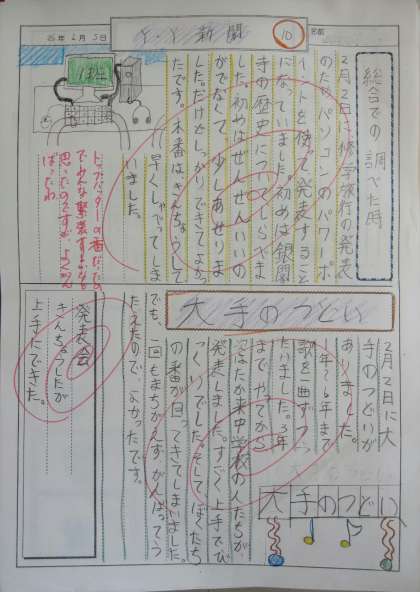 新聞
10
名前
総合での調べた時
2月2日に修学旅行の発表
のためパソコンのパワーポ
イントを使って発表すること
になっていました。初めは銀閣
寺の歴史についてしらべま
した。初めはぜんぜんいいの
がでなくて、少しあせりま
した。だけどしっかりできてよかっ
たです。本番はきんちょうして
早くしゃべってしま
いました。
トップバッターの番だったの
でみんな緊張するかなと
思ったのですが、よくがん
ばったね
大手のつどい
2月2日に大
手のつどいが
ありました。
1年〜6年まで
歌を一曲ずつう
たいました。3年
までやってから
発表しました。すごく上手でび
っくりでした。そしてぼくたち
の番が回ってきてしまいました。
でも、一回もまちがえずがんばってう
たえたので、よかったです。
大手のつどい
発表会
きんちょうしたが
上手にできた。